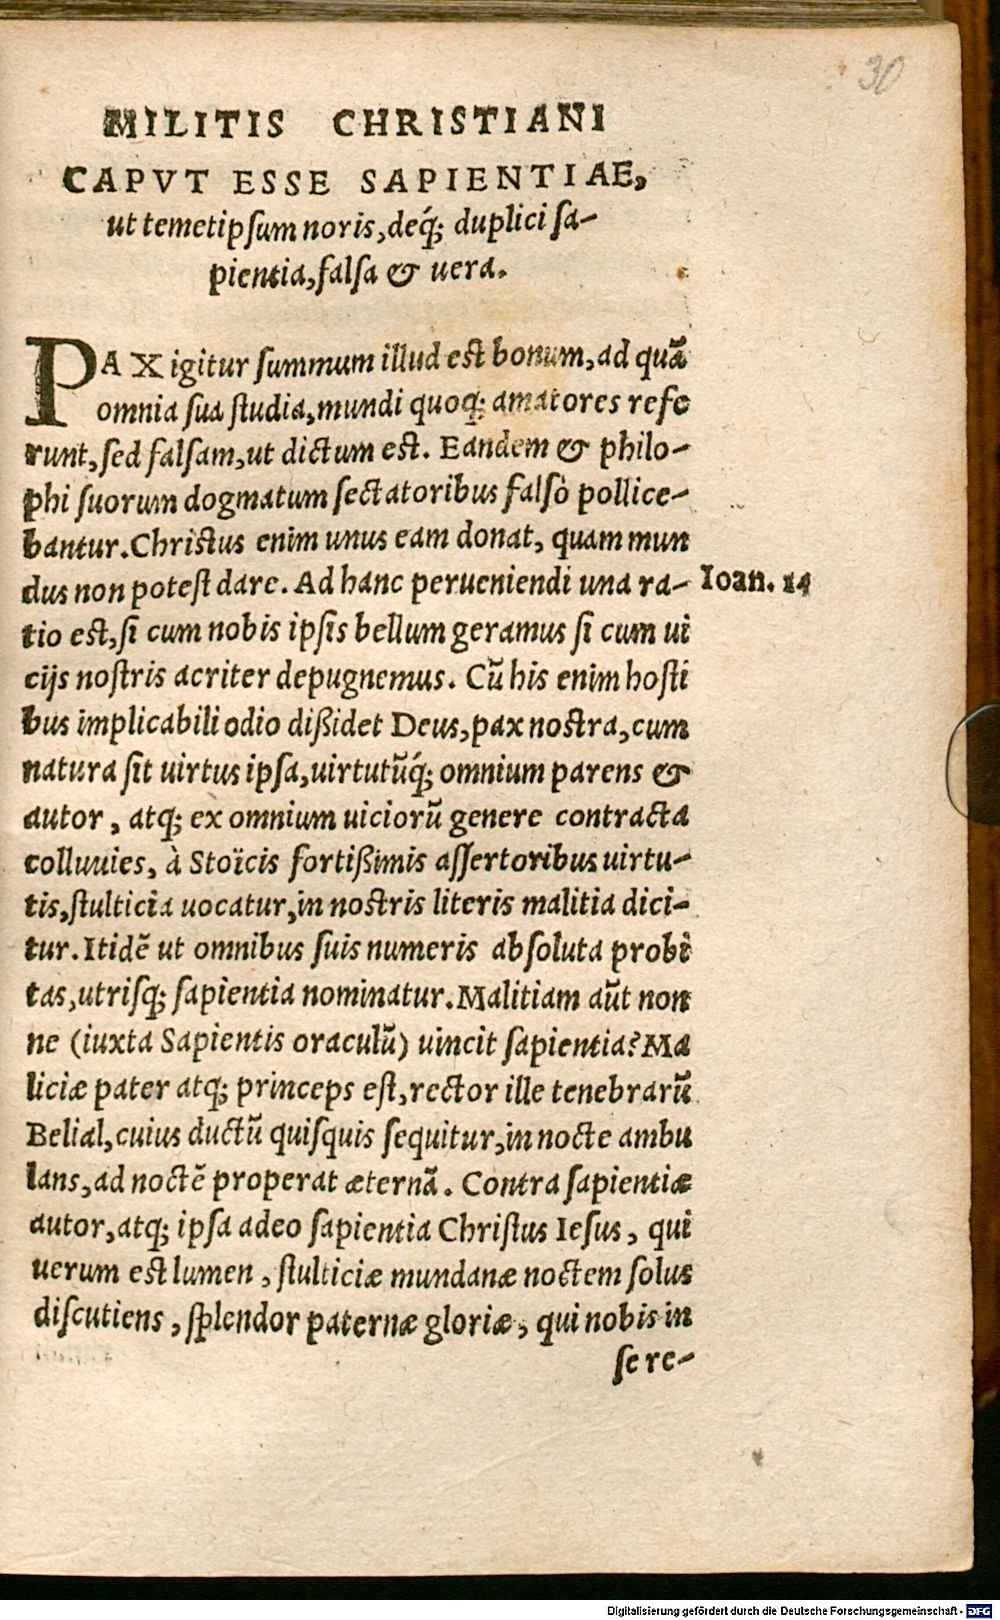 30
MILITIS CHRISTIANI
CAPVT ESSE SAPIENTIAE,
ut temetipſum noris, deq́; duplici ſa-
pientia, falſa & uera.
PAX igitur ſummum illud eſt bonum, ad quã
omnia ſua ſtudia, mundi quoq; amatores refe
runt, ſed falſam, ut dictum eſt. Eandem & philo-
phi ſuorum dogmatum ſectatoribus falſò pollice-
bantur. Chriſtus enim unus eam donat, quam mun
dus non poteſt dare. Ad hanc perueniendi una ra-
Ioan. 14
tio eſt, ſi cum nobis ipſis bellum geramus ſi cum ui
cijs noſtris acriter depugnemus. Cũ his enim hoſti
bus implicabili odio dißidet Deus, pax noſtra, cum
natura ſit uirtus ipſa, uirtutũq́; omnium parens &
autor, atq; ex omnium uiciorũ genere contracta
colluuies, à Stoïcis fortißimis aſſertoribus uirtu-
tis, ſtulticia uocatur, in noſtris literis malitia dici-
tur. Itidẽ ut omnibus ſuis numeris abſoluta probi
tas, utriſq; ſapientia nominatur. Malitiam aũt non
ne (iuxta Sapientis oraculũ) uincit ſapientia? Ma
liciæ pater atq; princeps eſt, rector ille tenebrarũ
Belial, cuius ductũ quiſquis ſequitur, in nocte ambu
lans, ad noctẽ properat æternã. Contra ſapientiæ
autor, atq; ipſa adeo ſapientia Chriſtus Ieſus, qui
uerum eſt lumen, ſtulticiæ mundanæ noctem ſolus
diſcutiens, ſplendor paternæ gloriæ, qui nobis in
ſe re-
Digitalisierung gefördert durch die Deutsche Forschungsgemeinschaft - DFG